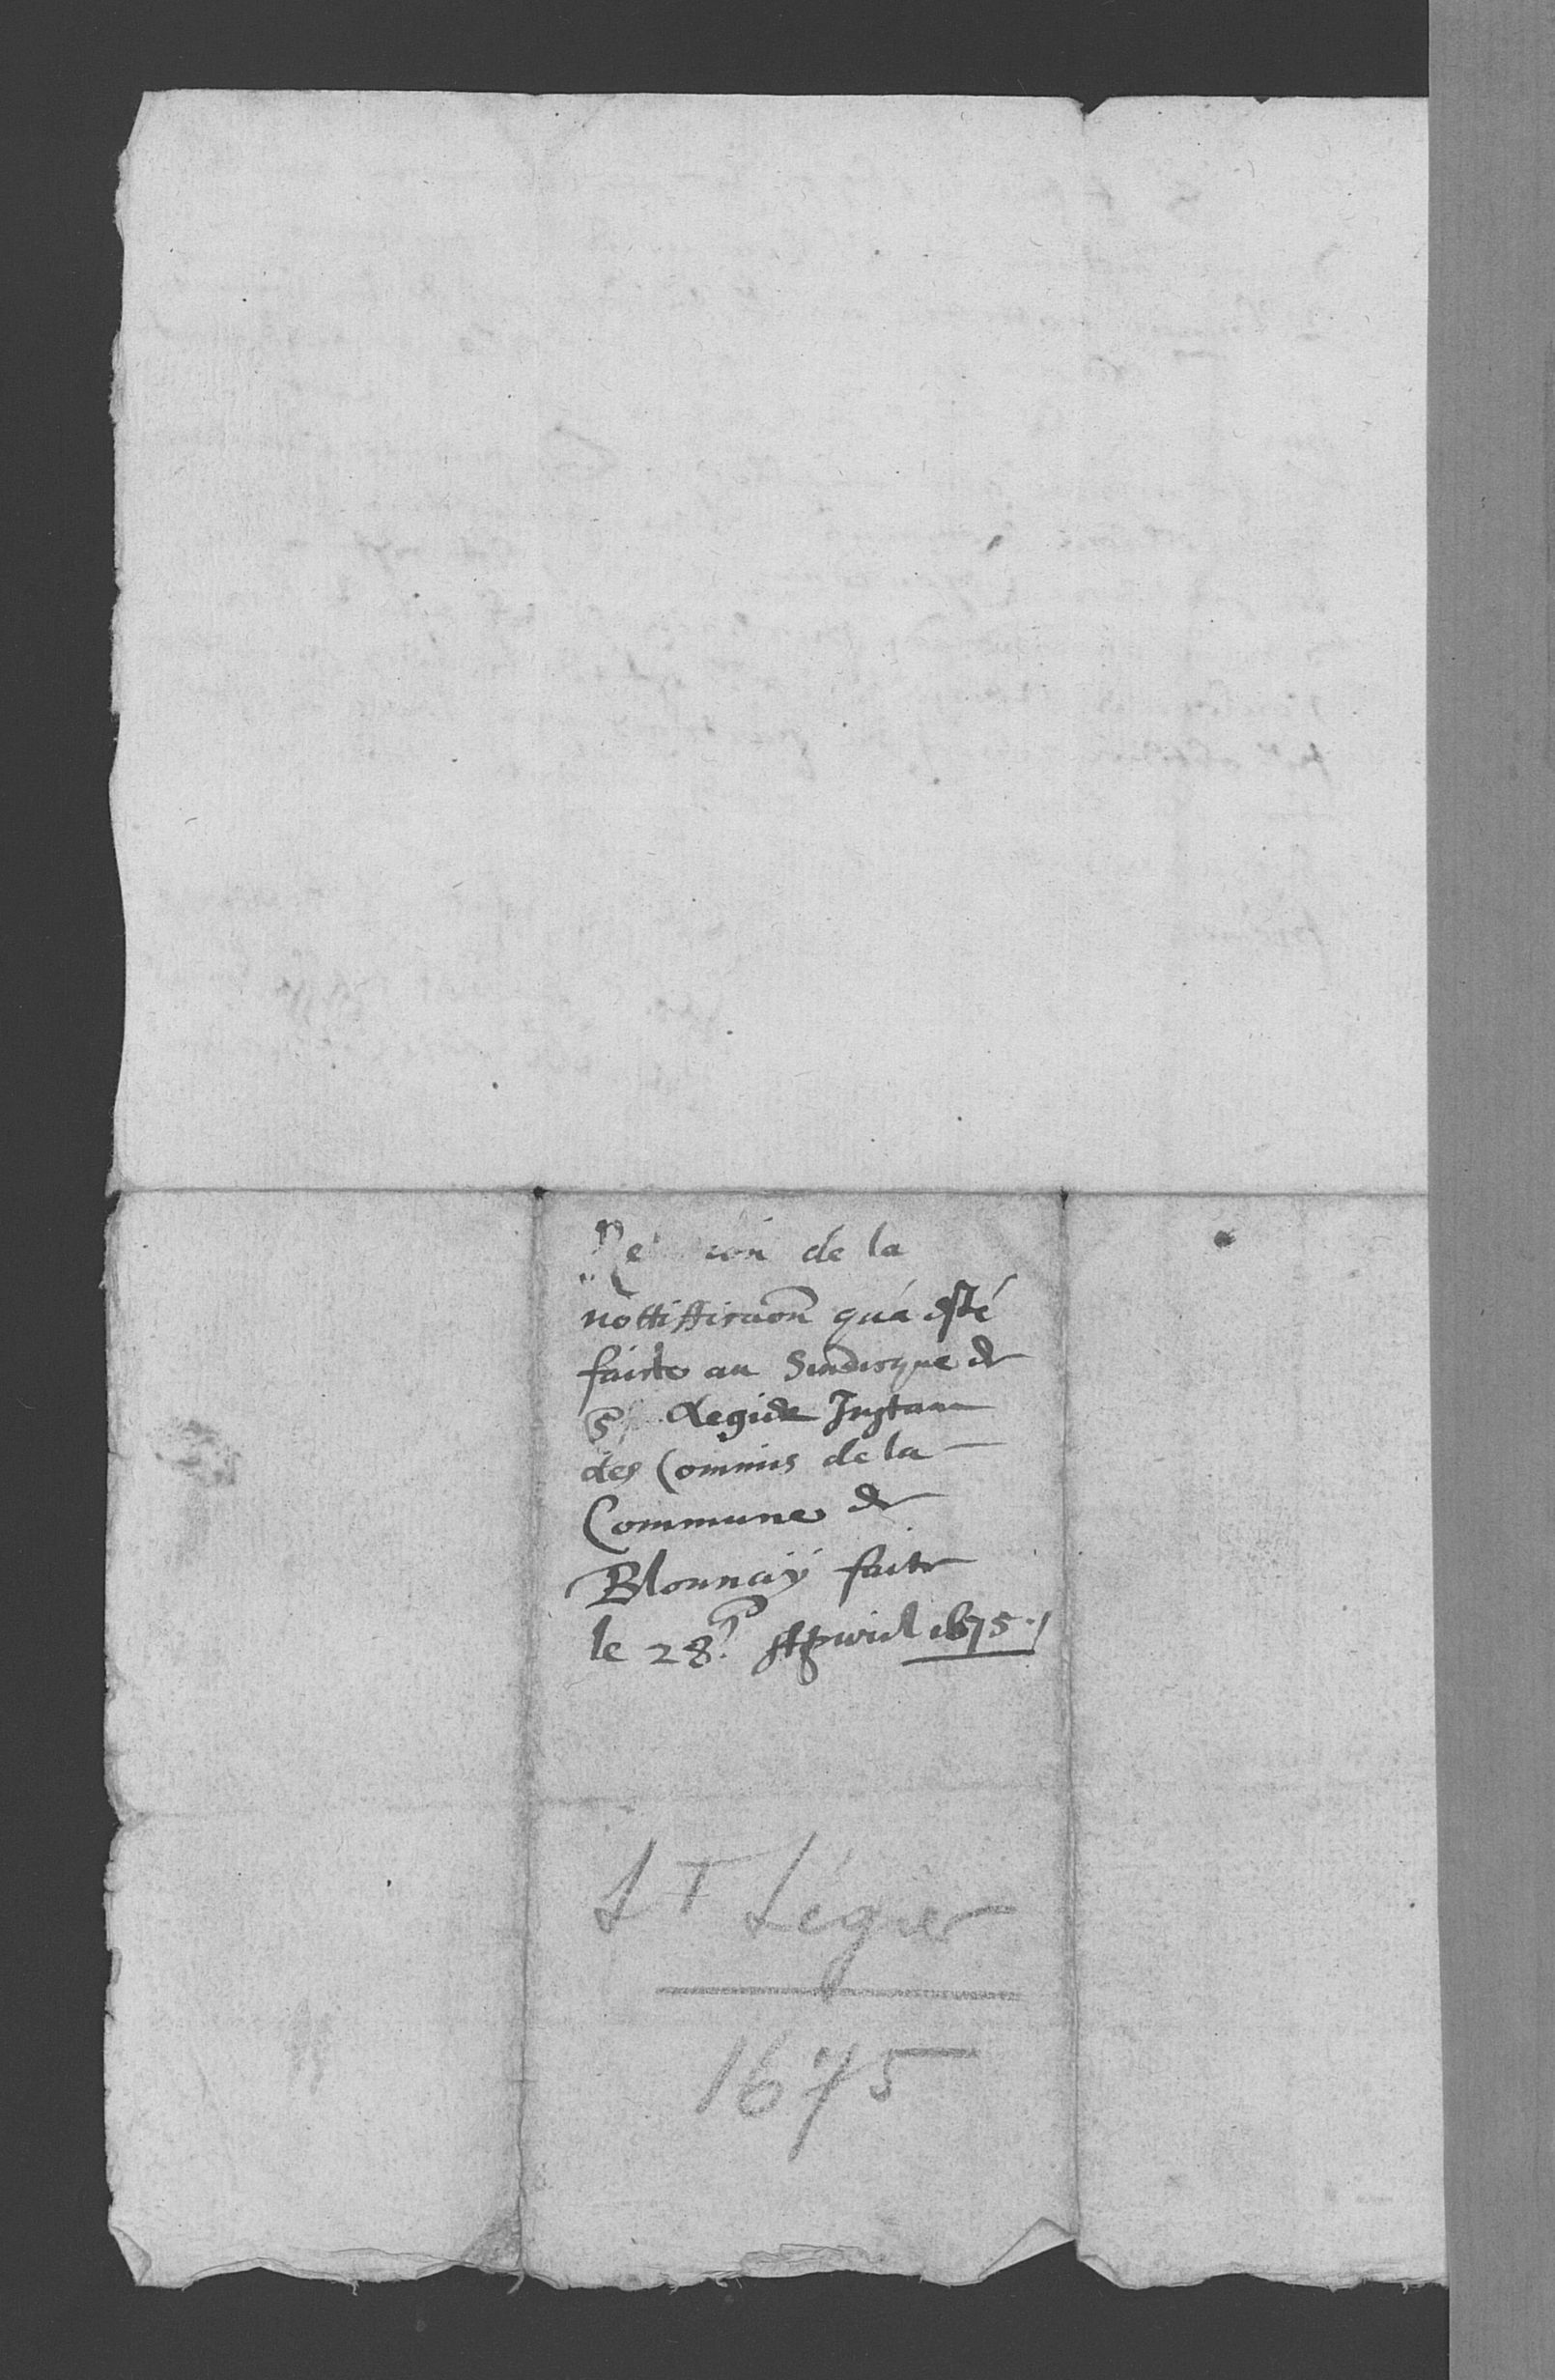 de la
nottiffica͠on qu'a esté
faicte au Sindicque de
St Legier Instan
des Commis de la
Commune de
Blonnaÿ faite
le 28.e Apvril 1675 ./
St Légier
1675